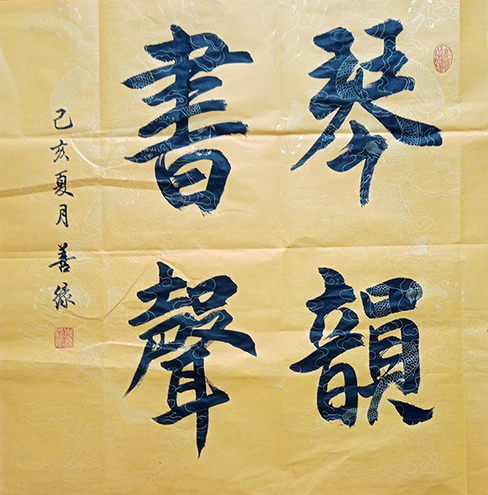 琴韻
書聲
己亥夏月善缘